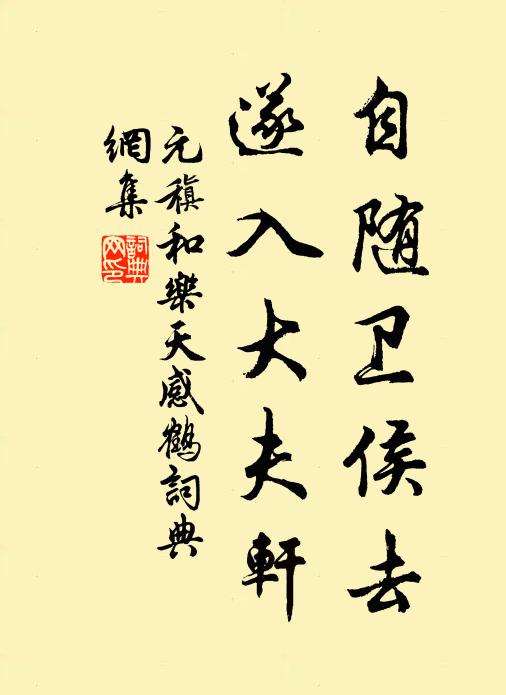 自随卫侯去
遂入大夫軒
元稹和樂天感鶴詞典
網集
詞典網印